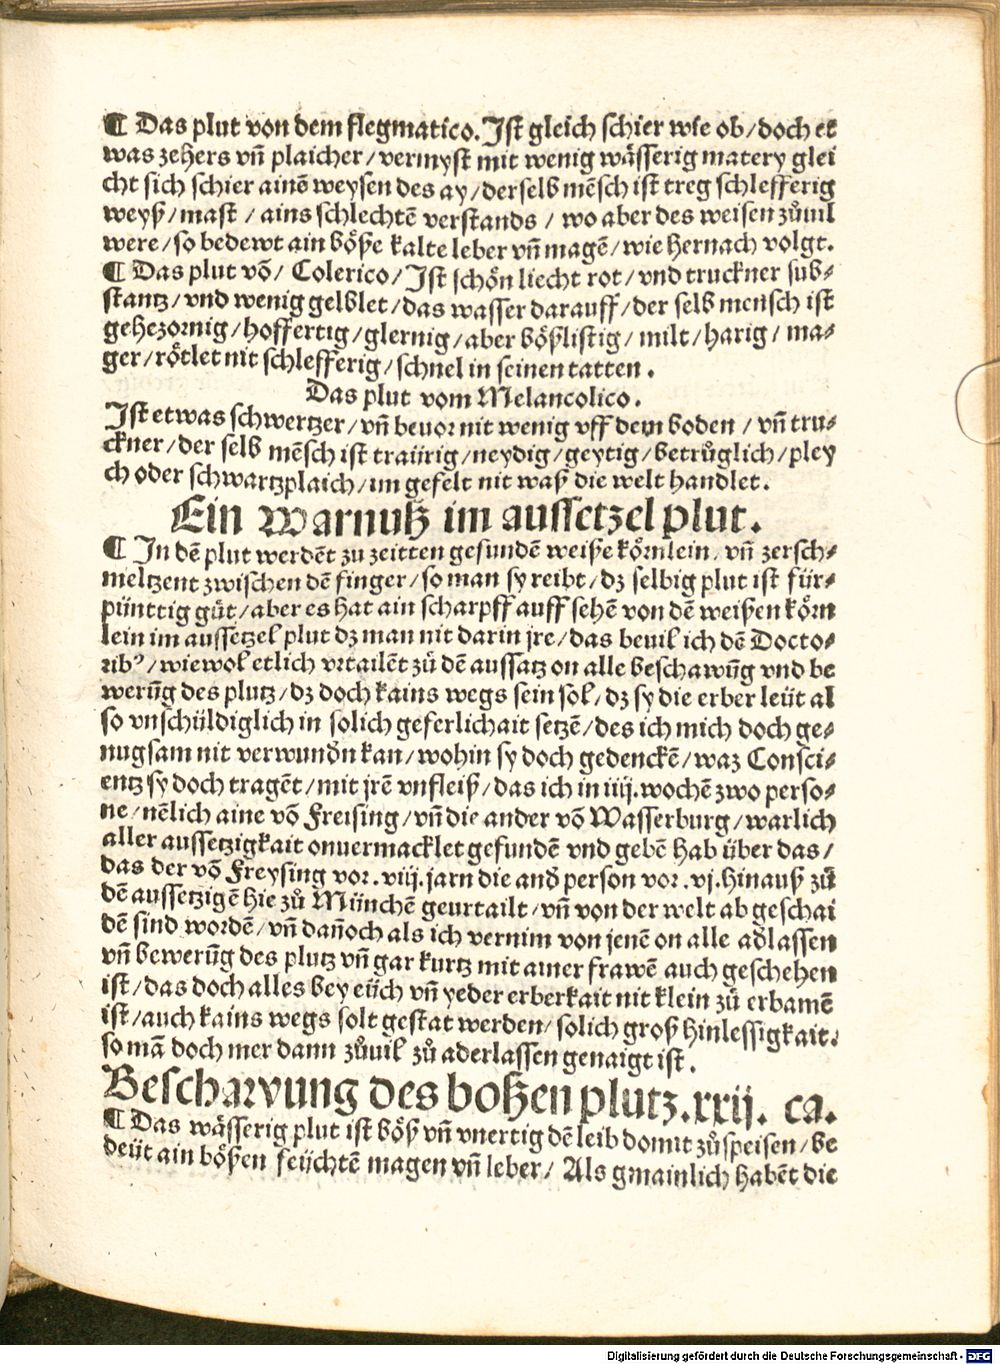 ¶ Das plut von dem flegmatico. Ist gleich schier wie ob/doch et
was zehers vñ plaicher/vermyst mit wenig wässerig matery glei
cht sich schier ainē weysen des ay/derselb mēsch ist treg schlefferig
weyß/mast/ains schlechtē verstands/wo aber des weisen zůuil
were/so bedewt ain böße kalte leber vñ magē/wie hernach volgt.
¶ Das plut võ/Colerico/Ist schön liecht rot/vnd truckner sub⸗
stantz/vnd wenig gelblet/das wasser darauff/der selb mensch ist
gehezornig/hoffertig/glernig/aber bößlistig/milt/harig/ma⸗
ger/rötlet nit schlefferig/schnel in seinen tatten.
Das plut vom Melancolico.
Ist etwas schwertzer/vñ beuor nit wenig vff dem boden/vñ tru⸗
ckner/der selb mēsch ist traürig/neydig/geytig/betrůglich/pley
ch oder schwartzplaich/im gefelt nit waß die welt handlet.
Ein Warnuß im aussetzel plut.
¶ In dē plut werdēt zu zeitten gefundē weiße körnlein/vñ zersch⸗
meltzent zwischen dē finger/so man sy reibt/dz selbig plut ist für⸗
pünttig gůt/aber es hat ain scharpff auff sehē von dē weißen körn
lein im aussetzel plut dz man nit darin jre/das beuil ich dē Docto⸗
ribꝰ/wiewol etlich vrtailēt zů dē aussatz on alle beschawūg vnd be
werūg des plutz/dz doch kains wegs sein sol/dz sy die erber leüt al
so vnschüldiglich in solich geferlichait setzē/des ich mich doch ge⸗
nugsam nit verwundn kan/wohin sy doch gedenckē/waz Consci⸗
entz sy doch tragēt/mit jrē vnfleiß/das ich in iiij.wochē zwo perso⸗
ne/nēlich aine võ Freising/vñ die ander võ Wasserburg/warlich
aller aussetzigkait onuermacklet gefundē vnd gebē hab über das/
das der võ Freysing vor.viij.jarn die and person vor.vj.hinauß zů
dē aussetzigē hie zů Münchē geurtailt/vñ von der welt ab geschai
dē sind wordē/vñ dañoch als ich vernim von jenē on alle adlassen
vñ bewerūg des plutz vñ gar kurtz mit ainer frawē auch geschehen
ist/das doch alles bey eüch vñ yeder erberkait nit klein zů erbamē
ist/auch kains wegs solt gestat werden/solich groß hinlessigkait.
so mā doch mer dann zůuil zů aderlassen genaigt ist.
Beschawung des boßen plutz.xxij. ca.
¶ Das wässerig plut ist böß vñ vnertig dē leib domit zůspeisen/be
deüt ain bößen feüchtē magen vñ leber/Als gmainlich habēt die
Digitalisierung gefördert durch die Deutsche Forschungsgemeinschaft - DFG